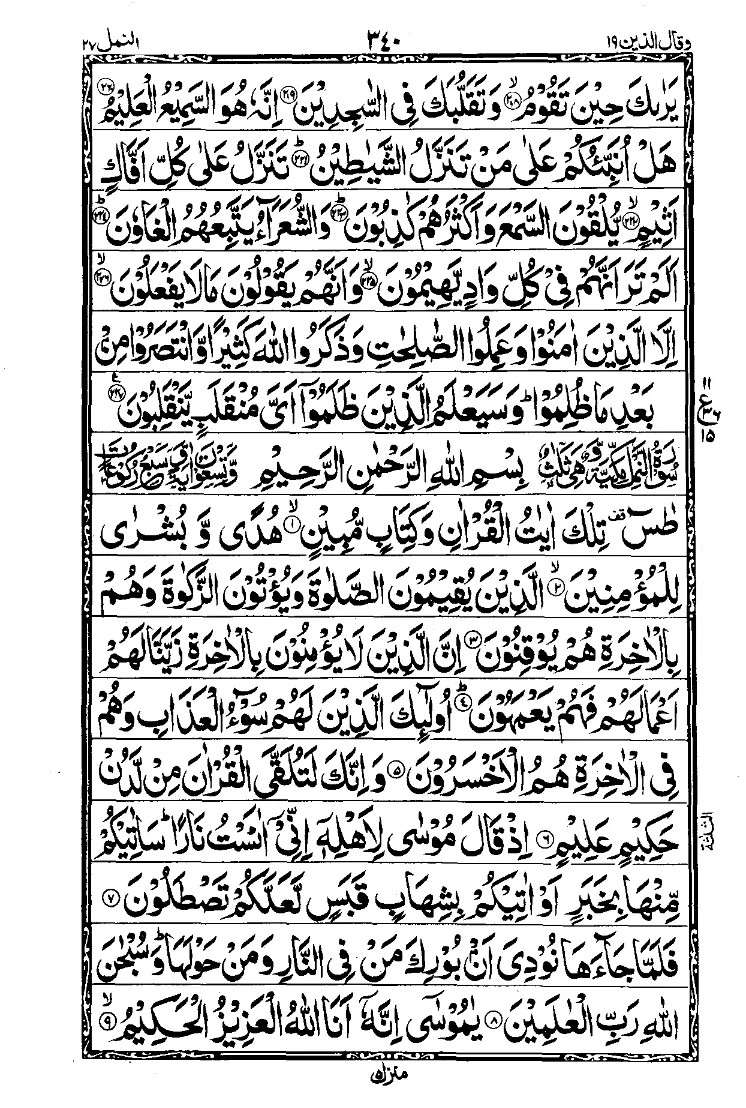 وقال الذين ١٩ ٣٤٠ النمل ٢٧
يَرٰىكَ حِيْنَ تَقُوْمُ ۙ﴿۲۱۸﴾ وَتَقَلُّبَكَ فِى السّٰجِدِيْنَ ﴿۲۱۹﴾ اِنَّهٗ هُوَ السَّمِيْعُ الْعَلِيْمُ ﴿۲۲۰﴾
هَلْ اُنَبِّئُكُمْ عَلٰى مَنْ تَنَزَّلُ الشَّيٰطِيْنُ ؕ﴿۲۲۱﴾ تَنَزَّلُ عَلٰى كُلِّ اَفَّاكٍ
اَثِيْمٍ ۙ﴿۲۲۲﴾ يُّلْقُوْنَ السَّمْعَ وَاَكْثَرُهُمْ كٰذِبُوْنَ ؕ﴿۲۲۳﴾ وَالشُّعَرَآءُ يَتَّبِعُهُمُ الْغَاوٗنَ ؕ﴿۲۲۴﴾
اَلَمْ تَرَ اَنَّهُمْ فِىْ كُلِّ وَادٍ يَّهِيْمُوْنَ ۙ﴿۲۲۵﴾ وَاَنَّهُمْ يَقُوْلُوْنَ مَا لَا يَفْعَلُوْنَ ۙ﴿۲۲۶﴾
اِلَّا الَّذِيْنَ اٰمَنُوْا وَعَمِلُوا الصّٰلِحٰتِ وَذَكَرُوا اللّٰهَ كَثِيْرًا وَّانْتَصَرُوْا مِنْۢ
بَعْدِ مَا ظُلِمُوْا ؕ وَسَيَعْلَمُ الَّذِيْنَ ظَلَمُوْۤا اَىَّ مُنْقَلَبٍ يَّنْقَلِبُوْنَ ﴿۲۲۷﴾ ع
١١
ع ٣٦
١٥
سُوْرَةُ النَّمْلِ مَكِّيَّةٌ وَّهِىَ ثَلٰثٌ بِسْمِ اللّٰهِ الرَّحْمٰنِ الرَّحِيْمِ وَّتِسْعُوْنَ اٰيَةً وَّسَبْعُ رُكُوْعَاتٍ
طٰسٓ ۟ تِلْكَ اٰيٰتُ الْقُرْاٰنِ وَكِتَابٍ مُّبِيْنٍ ۙ﴿۱﴾ هُدًى وَّ بُشْرٰى
لِلْمُؤْمِنِيْنَ ۙ﴿۲﴾ الَّذِيْنَ يُقِيْمُوْنَ الصَّلٰوةَ وَيُؤْتُوْنَ الزَّكٰوةَ وَهُمْ
بِالْاٰخِرَةِ هُمْ يُوْقِنُوْنَ ﴿۳﴾ اِنَّ الَّذِيْنَ لَا يُؤْمِنُوْنَ بِالْاٰخِرَةِ زَيَّنَّا لَهُمْ
اَعْمَالَهُمْ فَهُمْ يَعْمَهُوْنَ ؕ﴿۴﴾ اُولٰٓئِكَ الَّذِيْنَ لَهُمْ سُوْٓءُ الْعَذَابِ وَهُمْ
فِى الْاٰخِرَةِ هُمُ الْاَخْسَرُوْنَ ﴿۵﴾ وَاِنَّكَ لَتُلَقَّى الْقُرْاٰنَ مِنْ لَّدُنْ
حَكِيْمٍ عَلِيْمٍ ﴿۶﴾ اِذْ قَالَ مُوْسٰى لِاَهْلِهٖۤ اِنِّىْۤ اٰنَسْتُ نَارًا ؕ سَاٰتِيْكُمْ
الثلثة
مِّنْهَا بِخَبَرٍ اَوْ اٰتِيْكُمْ بِشِهَابٍ قَبَسٍ لَّعَلَّكُمْ تَصْطَلُوْنَ ﴿۷﴾
فَلَمَّا جَآءَهَا نُوْدِىَ اَنْۢ بُوْرِكَ مَنْ فِى النَّارِ وَمَنْ حَوْلَهَا ؕ وَسُبْحٰنَ
اللّٰهِ رَبِّ الْعٰلَمِيْنَ ﴿۸﴾ يٰمُوْسٰۤى اِنَّهٗۤ اَنَا اللّٰهُ الْعَزِيْزُ الْحَكِيْمُ ۙ﴿۹﴾
منزل ٥